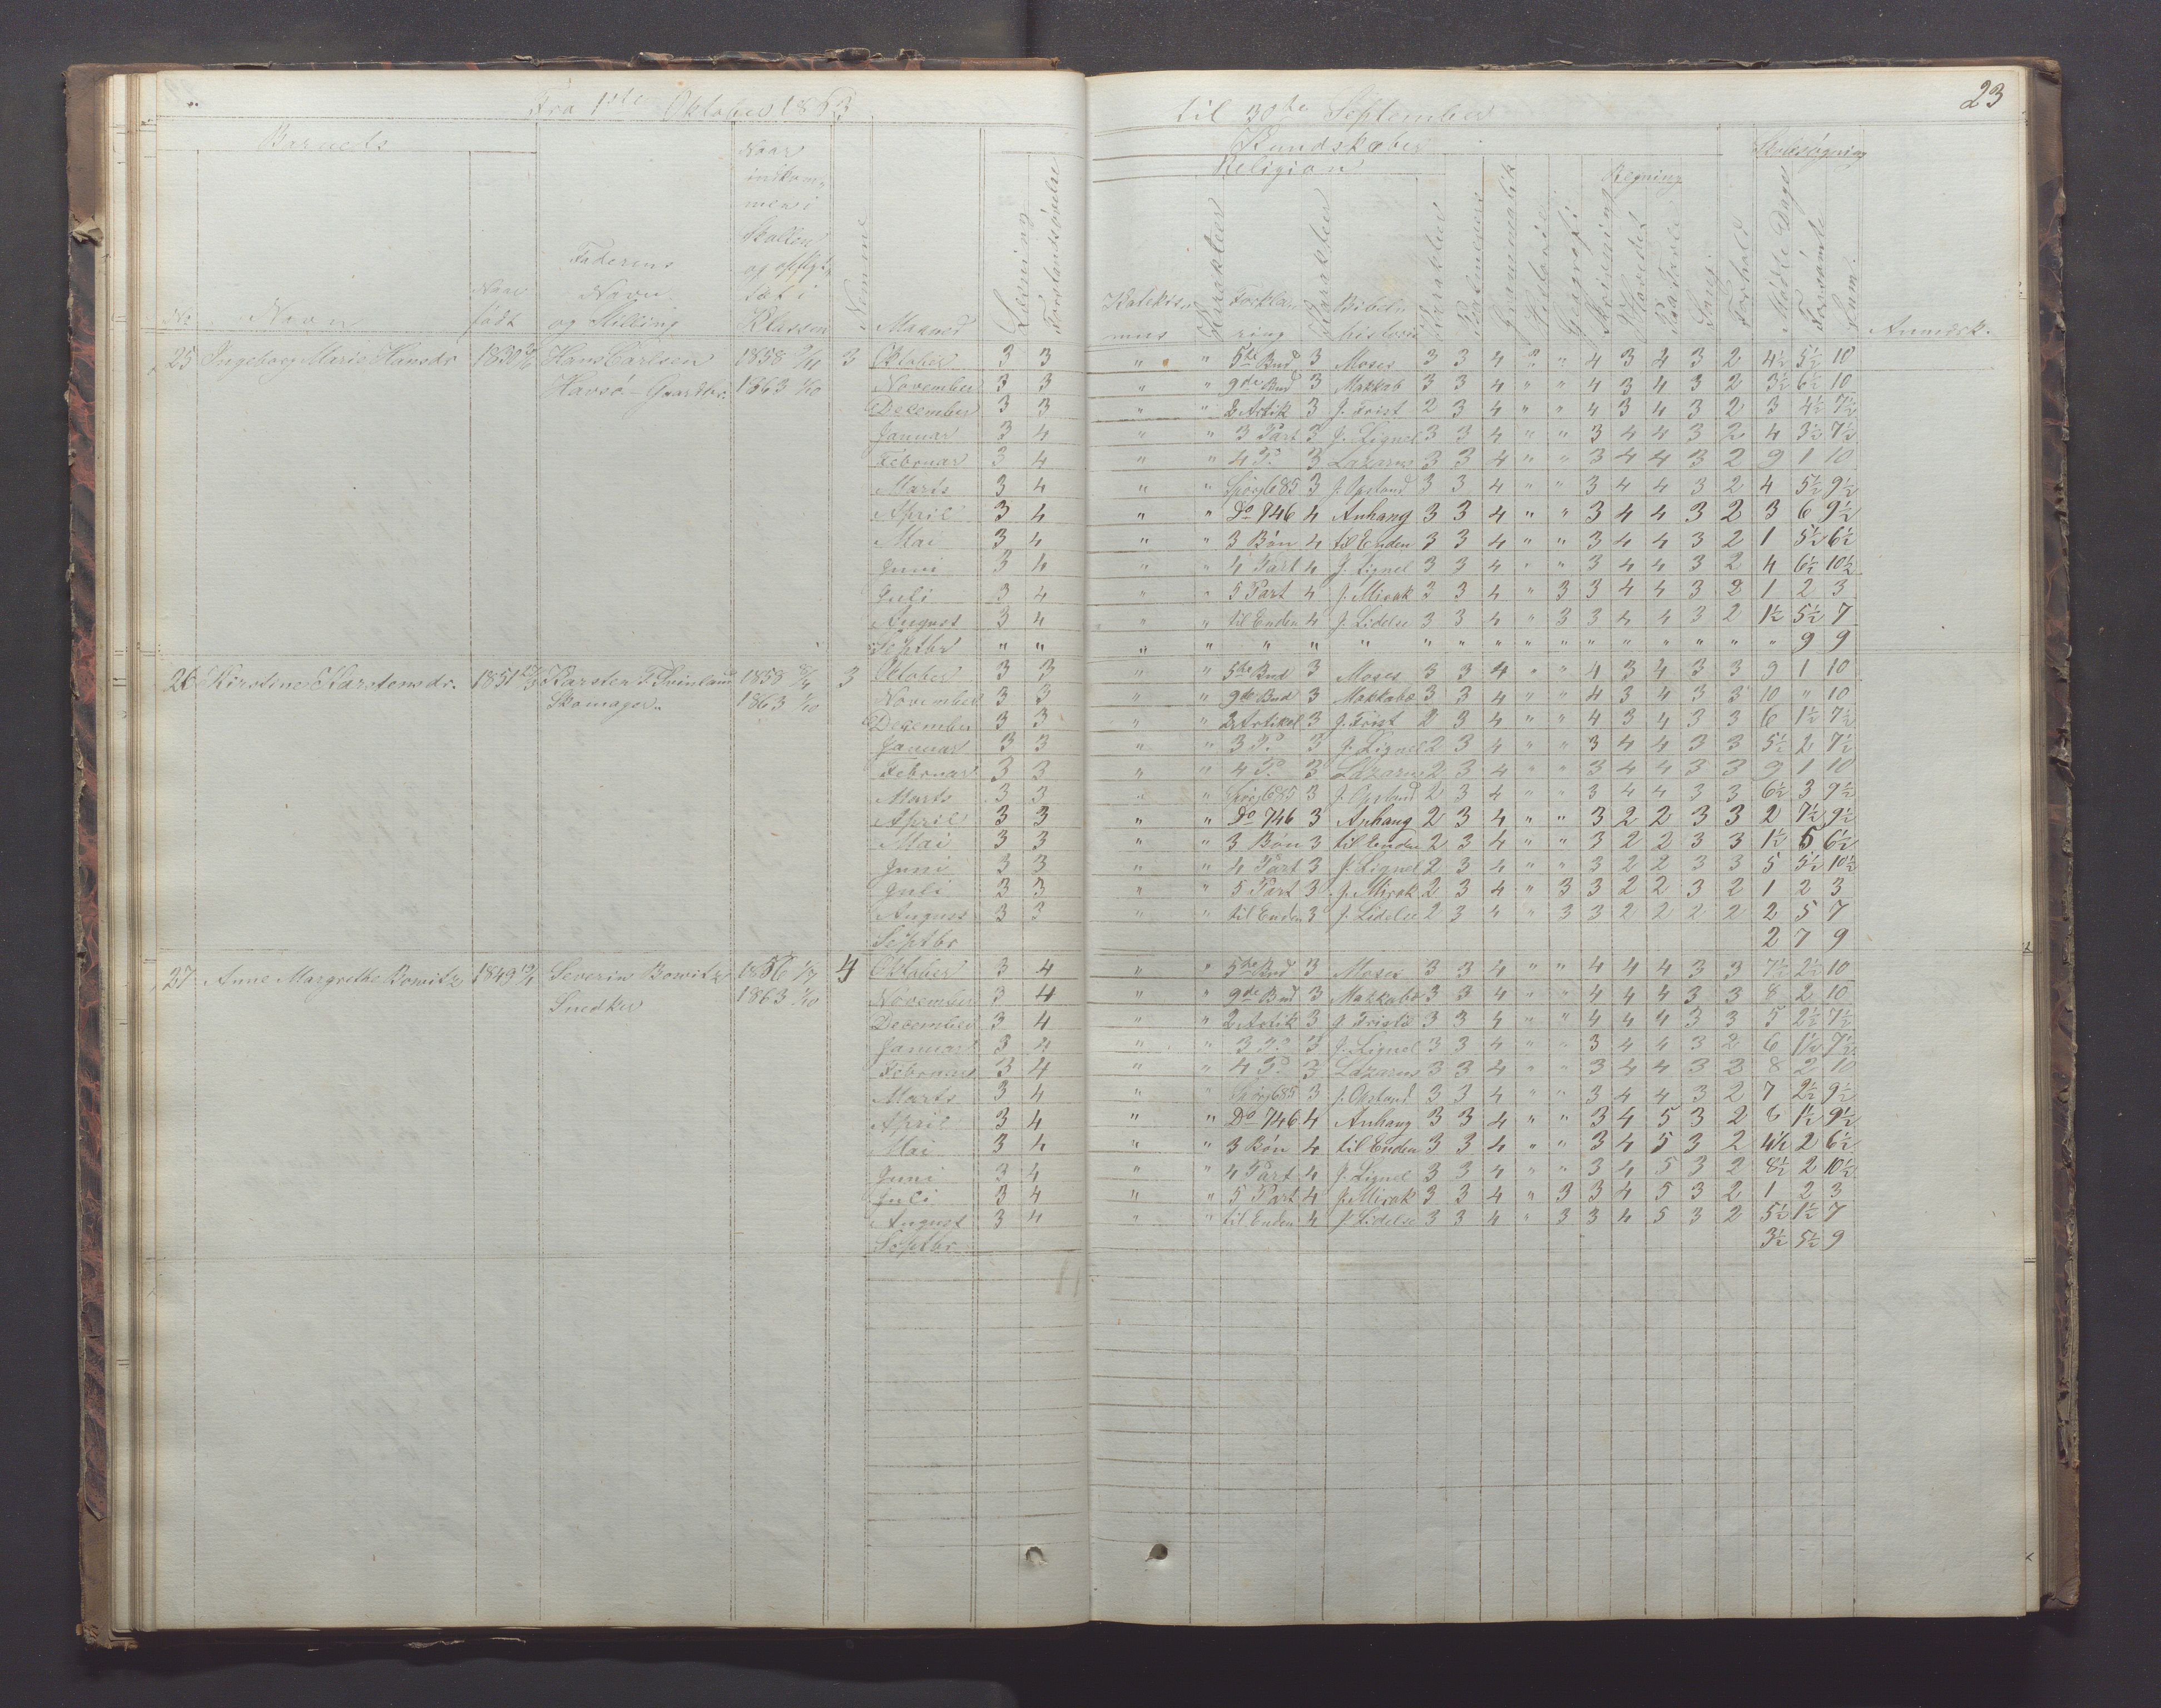 23
Fra 1ste Oktober 1863 til 30te September
Barnets
Kundskaber
Skolesøgning
Religion
Regning
No Navn Naar født Faderens Navn og Stilling Naar indkommen i Skolen og opflyttet i Klassen Nemme Maaned Læsning Forstandsøvelse Katekismus Karakter Forklaring Karakter Bibelhistorie Karakter Grammatik Historie Geografi Skrivning Hovedet Tavle Sang Forhold Mødte Dage Forsømte Sum. Anmærk.
25 Ingeborg Marie Hansdr 1850 Hans Carlsen 1858 3 Oktober 3 3 " " 5te Bud 3 Moses 3 3 4 " " 4 3 4 3 2 4½ 5½ 10
Havsø - Gaardbr. 1863 1/10 November 3 3 " " 9de Bud 3 Makkab 3 3 4 " " 4 3 4 3 2 3½ 6½ 10
December 3 3 " " 2 Artik 3 J. Frist 2 3 4 " " 4 3 4 3 2 3 4½ 7½
Januar 3 4 " " 3 Part 3 J. Lignel 3 3 4 " " 3 4 4 3 2 4 3½ 7½
Februar 3 4 " " 4 P. 3 Lazarus 3 3 4 " " 3 4 4 3 2 9 1 10
Marts 3 4 " " Spørg 685 3 J. Opstand 3 3 4 " " 3 4 4 3 2 4 5½ 9½
April 3 4 " " Do 746 4 Anhang 3 3 4 " " 3 4 4 3 2 3 6 9½
Mai 3 4 " " 3 Bøn 4 til Enden 3 3 4 " " 3 4 4 3 2 1 5½ 6½
Juni 3 4 " " 4 Part 4 J. Lignel 3 3 4 " " 3 4 4 3 2 4 6½ 10½
Juli 3 4 " " 5 Part 4 J. Mirak 3 3 4 " 3 3 4 4 3 2 1 2 3
August 3 4 " " til Enden 4 J. Lidelse 3 3 4 " 3 3 4 4 3 2 1½ 5½ 7
Septbr " " " " " " " " " " " " " " " " " " " 9 9
26 Kirstine Karstensdr. 1851 Karsten T. Svinland 1858 3 Oktober 3 3 " " 5te Bud 3 Moses 3 3 4 " " 4 3 4 3 3 9 1 10
Skomager. 1863 1/10 November 3 3 " " 9de Bud 3 Makkabæ 3 3 4 " " 4 3 4 3 3 10 " 10
December 3 3 " " 2 Artikel 3 J. Frist 2 3 4 " " 4 3 4 3 3 6 1½ 7½
Januar 3 3 " " 3 P. 3 J. Lignel 2 3 4 " " 3 4 4 3 3 5½ 2 7½
Februar 3 3 " " 4 P. 3 Lazarus 2 3 4 " " 3 4 4 3 3 9 1 10
Marts 3 3 " " Spørg 685 3 J. Opstand 2 3 4 " " 3 4 4 3 3 6½ 3 9½
April 3 3 " " Do 746 3 Anhang 2 3 4 " " 3 2 2 3 3 2 7½ 9½
Mai 3 3 " " 3 Bøn 3 til Enden 2 3 4 " " 3 2 2 3 3 1½ 5 6½
Juni 3 3 " " 4 Part 3 J. Lignel 2 3 4 " " 3 2 2 3 3 5 5½ 10½
Juli 3 3 " " 5 Part 3 J. Mirak 2 3 4 " 3 3 2 2 3 2 1 2 3
August 3 3 " " til Enden 3 J. Lidelse 2 3 4 " 3 3 2 2 2 2 2 5 7
Septbr 2 7 9
27 Anne Margrethe Bowitz 1849 Severin Bowitz 1856 1/7 4 Oktober 3 4 " " 5te Bud 3 Moses 3 3 4 " " 4 4 4 3 3 7½ 2½ 10
Snedker 1863 1/10 November 3 4 " " 9de Bud 3 Makkabæ 3 3 4 " " 4 4 4 3 3 8 2 10
December 3 4 " " 2 Artik 3 J. Friste 3 3 4 " " 4 4 4 3 3 5 2½ 7½
Januar 3 4 " " 3 P. 3 J. Lignel 3 3 4 " " 3 4 4 3 2 6 1½ 7½
Februar 3 4 " " 4 P. 3 Lazarus 3 3 4 " " 3 4 4 3 2 8 2 10
Marts 3 4 " " Spørg 685 3 J. Opstand 3 3 4 " " 3 4 4 3 2 7 2½ 9½
April 3 4 " " Do 746 4 Anhang 3 3 4 " " 3 4 5 3 2 8 1½ 9½
Mai 3 4 " " 3 Bøn 4 til Enden 3 3 4 " " 3 4 5 3 2 4½ 2 6½
Juni 3 4 " " 4 Part 4 J. Lignel 3 3 4 " " 3 4 5 3 2 8½ 2 10½
Juli 3 4 " " 5 Part 4 J. Mirak 3 3 4 " 3 3 4 5 3 2 1 2 3
August 3 4 " " til Enden 4 J. Lidelse 3 3 4 " 3 3 4 5 3 2 5½ 1½ 7
Septbr 3½ 5½ 9